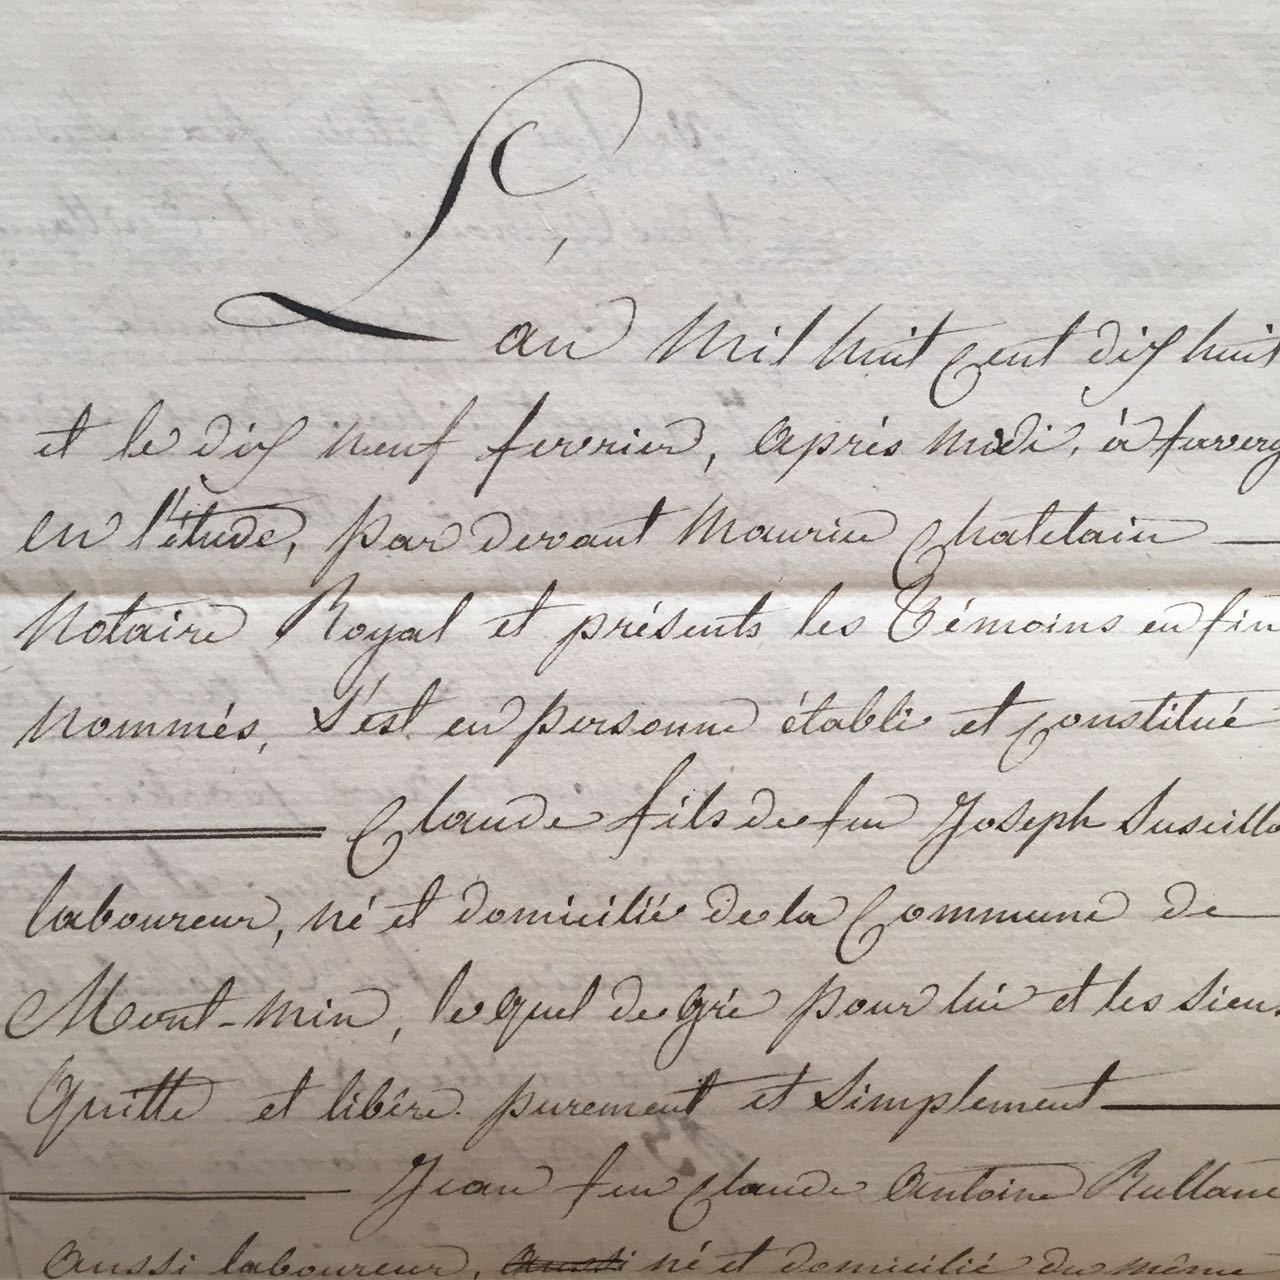 L'an Mil huit Cent dix huit
et le dix neuf fevrier, après Midi, à faverg
en l'étude, par devant Maurice Chatelain
Notaire Royal et présents les Témoins en fin
Nommés, S'est en personne établi et Constitué
Claude fils de feu Joseph
laboureur, né et domicilié de la Commune de
Mont-Min, lequel de gré pour lui et les siens
Quitte et libère purement et Simplement
Jean feu Claude Antoine
aussi laboureur, aussi né et domicilié du même